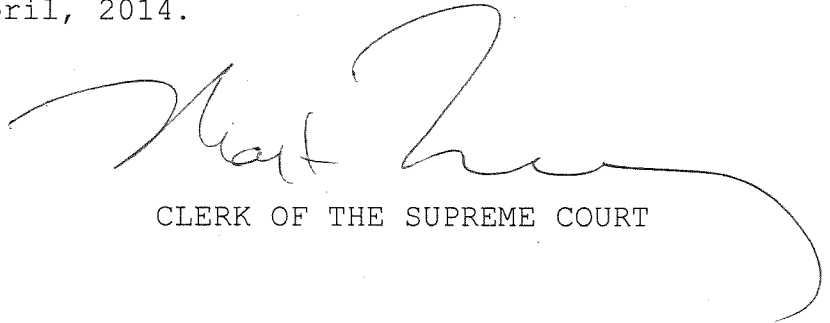 ril, 2014.
CLERK OF THE SUPREME COURT